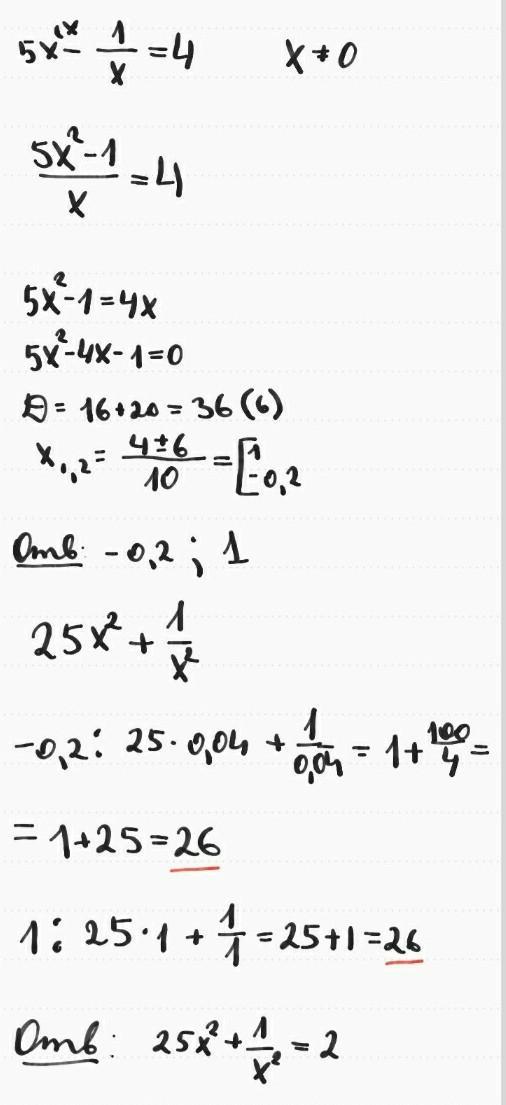 5x^(x - 1/x = 4 x ≠ 0
(5x² - 1)/x = 4
5x² - 1 = 4x
5x² - 4x - 1 = 0
D = 16 + 20 = 36 (6)
x₁,₂ = (4 ± 6)/10 = [1 -0,2
Отв: -0,2 ; 1
25x² + 1/x²
-0,2: 25 · 0,04 + 1/0,04 = 1 + 100/4 =
= 1 + 25 = 26
1: 25 · 1 + 1/1 = 25 + 1 = 26
Отв: 25x² + 1/x² = 2